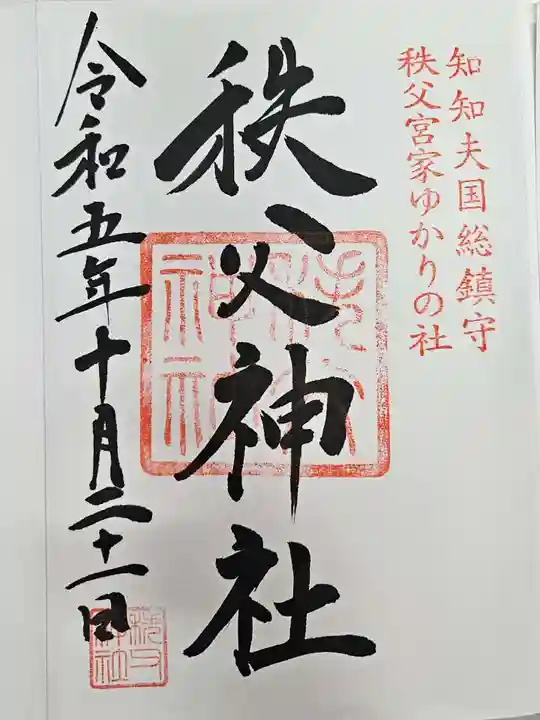 知知夫国総鎮守
秩父宮家ゆかりの社
秩父神社
令和五年十月二十一日
秩父
神社